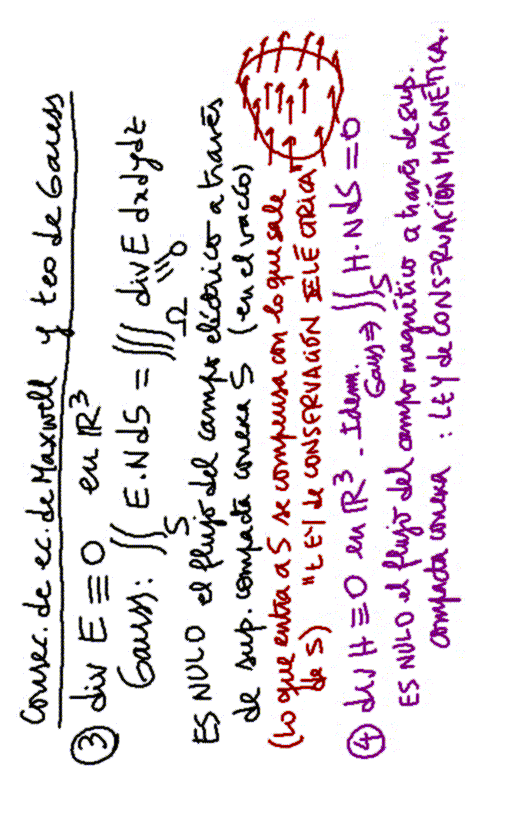 Consec. de ec. de Maxwell y teo de Gauss
③ div E ≡ 0 en ℝ³
Gauss: ∬_S E.NdS = ∭_Ω div E dxdydz
≡ 0
ES NULO el flujo del campo eléctrico a través
de sup. compacta conexa S (en el vacío)
(Lo que entra a S se compensa con lo que sale
de S) "LEY de CONSERVACIÓN ELÉCTRICA"
④ div H ≡ 0 en ℝ³ - Idem.
Gauss ⇒ ∬_S H.NdS = 0
ES NULO el flujo del campo magnético a través de sup.
compacta conexa : LEY de CONSERVACIÓN MAGNÉTICA.